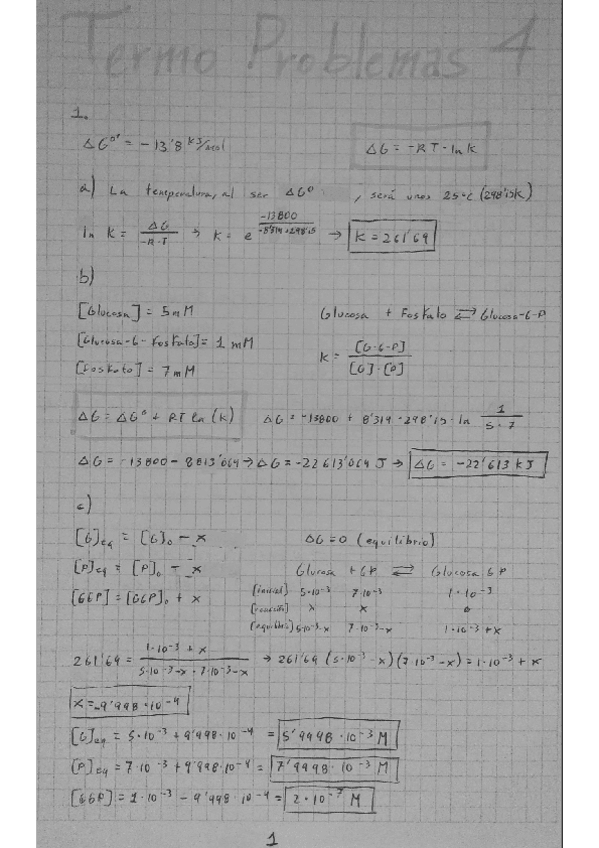 Termo Problemas 4
1.
ΔG°' = -13'8 kJ/mol    ΔG = -RT·ln K
a) La temperatura, al ser ΔG°, será unos 25°C (298'15K)
ln K = ΔG/(-R·T) → K = e^(-13800/(-8'314·298'15)) → K = 261'69
b)
[Glucosa] = 5 mM    Glucosa + Fosfato ⇌ Glucosa-6-P
[Glucosa-6-Fosfato] = 1 mM    K = [G-6-P]/([G]·[P])
[Fosfato] = 7 mM
ΔG = ΔG° + RT ln (K)    ΔG = -13800 + 8'314·298'15·ln 1/(5·7)
ΔG = -13800 - 8813'064 → ΔG = -22613'064 J → ΔG = -22'613 kJ
c)
[G]eq = [G]₀ - x    ΔG = 0 (equilibrio)
[P]eq = [P]₀ - x    Glucosa + GP ⇌ Glucosa 6P
[G6P] = [G6P]₀ + x    [inicial] 5·10⁻³ 7·10⁻³ 1·10⁻³
[reacción] x x
[equilibrio] 5·10⁻³-x 7·10⁻³-x 1·10⁻³+x
261'69 = (1·10⁻³ + x)/(5·10⁻³-x · 7·10⁻³-x) → 261'69 (5·10⁻³ - x)(7·10⁻³ - x) = 1·10⁻³ + x
x = -9'998·10⁻⁴
[G]eq = 5·10⁻³ + 9'998·10⁻⁴ = 5'9998·10⁻³ M
[P]eq = 7·10⁻³ + 9'998·10⁻⁴ = 7'9998·10⁻³ M
[G6P] = 1·10⁻³ - 9'998·10⁻⁴ = 2·10⁻⁷ M
1